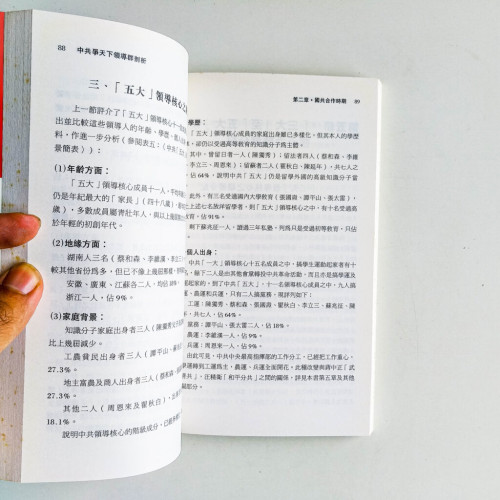 88 中共爭天下領導群剖析
三、「五大」領導核心之
上一節評介了「五大」領導核心十一
出並比較這些領導人的年齡、學歷、
料，作進一步分析（參閱表五：（中共「五
景簡表））：
(1)年齡方面：
「五大」領導核心成員十一人，平均年
仍是年紀最大的「家長」（四十八歲），
歲），多數成員屬青壯年人，與以上幾屆
於年輕的初創年代。
(2)地緣方面：
湖南人三名（蔡和森、李維漢、李立三），
較其他省份爲多，但已不像上幾屆那樣，
安徽、廣東、江蘇各二人，均佔18%。
浙江一人，佔9%。
(3)家庭背景：
知識分子家庭出身者三人（陳獨秀
比上幾屆減少。
工農貧民出身者三人（譚平山、蘇兆
27.3%。
地主富農及商人出身者三人（蔡和森、
27.3%。
其他二人（周恩來及瞿秋白），
18.1%。
說明中共領導核心的階級成分，已較
第二章・國共合作時期 89
學歷：
「五大」領導核心成員的家庭出身雖已多樣化，但其本人的學歷
卻仍以受過高等教育的知識分子爲主體。
其中，曾留日者一人（陳獨秀）；留法者四人（蔡和森、李維
李立三、周恩來）；留俄者二人（瞿秋白、陳延年），共七人之
佔64%，說明中共「五大」仍是留學外國的高級知識分子當
此外，有三名受過國內大學教育（張國燾、譚平山、張太雷），
上述七名旅洋留學者，則「五大」領導核心之中，有十名受過高
育，佔91%。
剩下蘇兆征一人，讀過三年私塾，列爲只是受過初等教育，只佔
個人出身：
中共「一大」領導核心十五名成員之中，搞學生運動出身者有十
，餘下二人是由其他會黨轉投中共革命活動，而且亦是搞學運及
起家的。到了中共「五大」，十一名領導核心成員之中，九人搞
、農運和兵運，只有二人搞黨務。現詳列如下：
工運：陳獨秀、蔡和森、張國燾、瞿秋白、李立三、蘇兆征、陳
，共七人，佔64%。
黨務：譚平山、張太雷二人，佔18%。
農運：李維漢一人，佔9%。
兵運：周恩來一人，佔9%。
由此可見，中共中央最高指揮部的工作分工，已經把工作重心，
學運轉到工運爲主，農運、兵運全面開花。此種改變與蔣中正「武
共」，汪精衛「和平分共」之間的關係，詳見本書第五章及其他
部分。